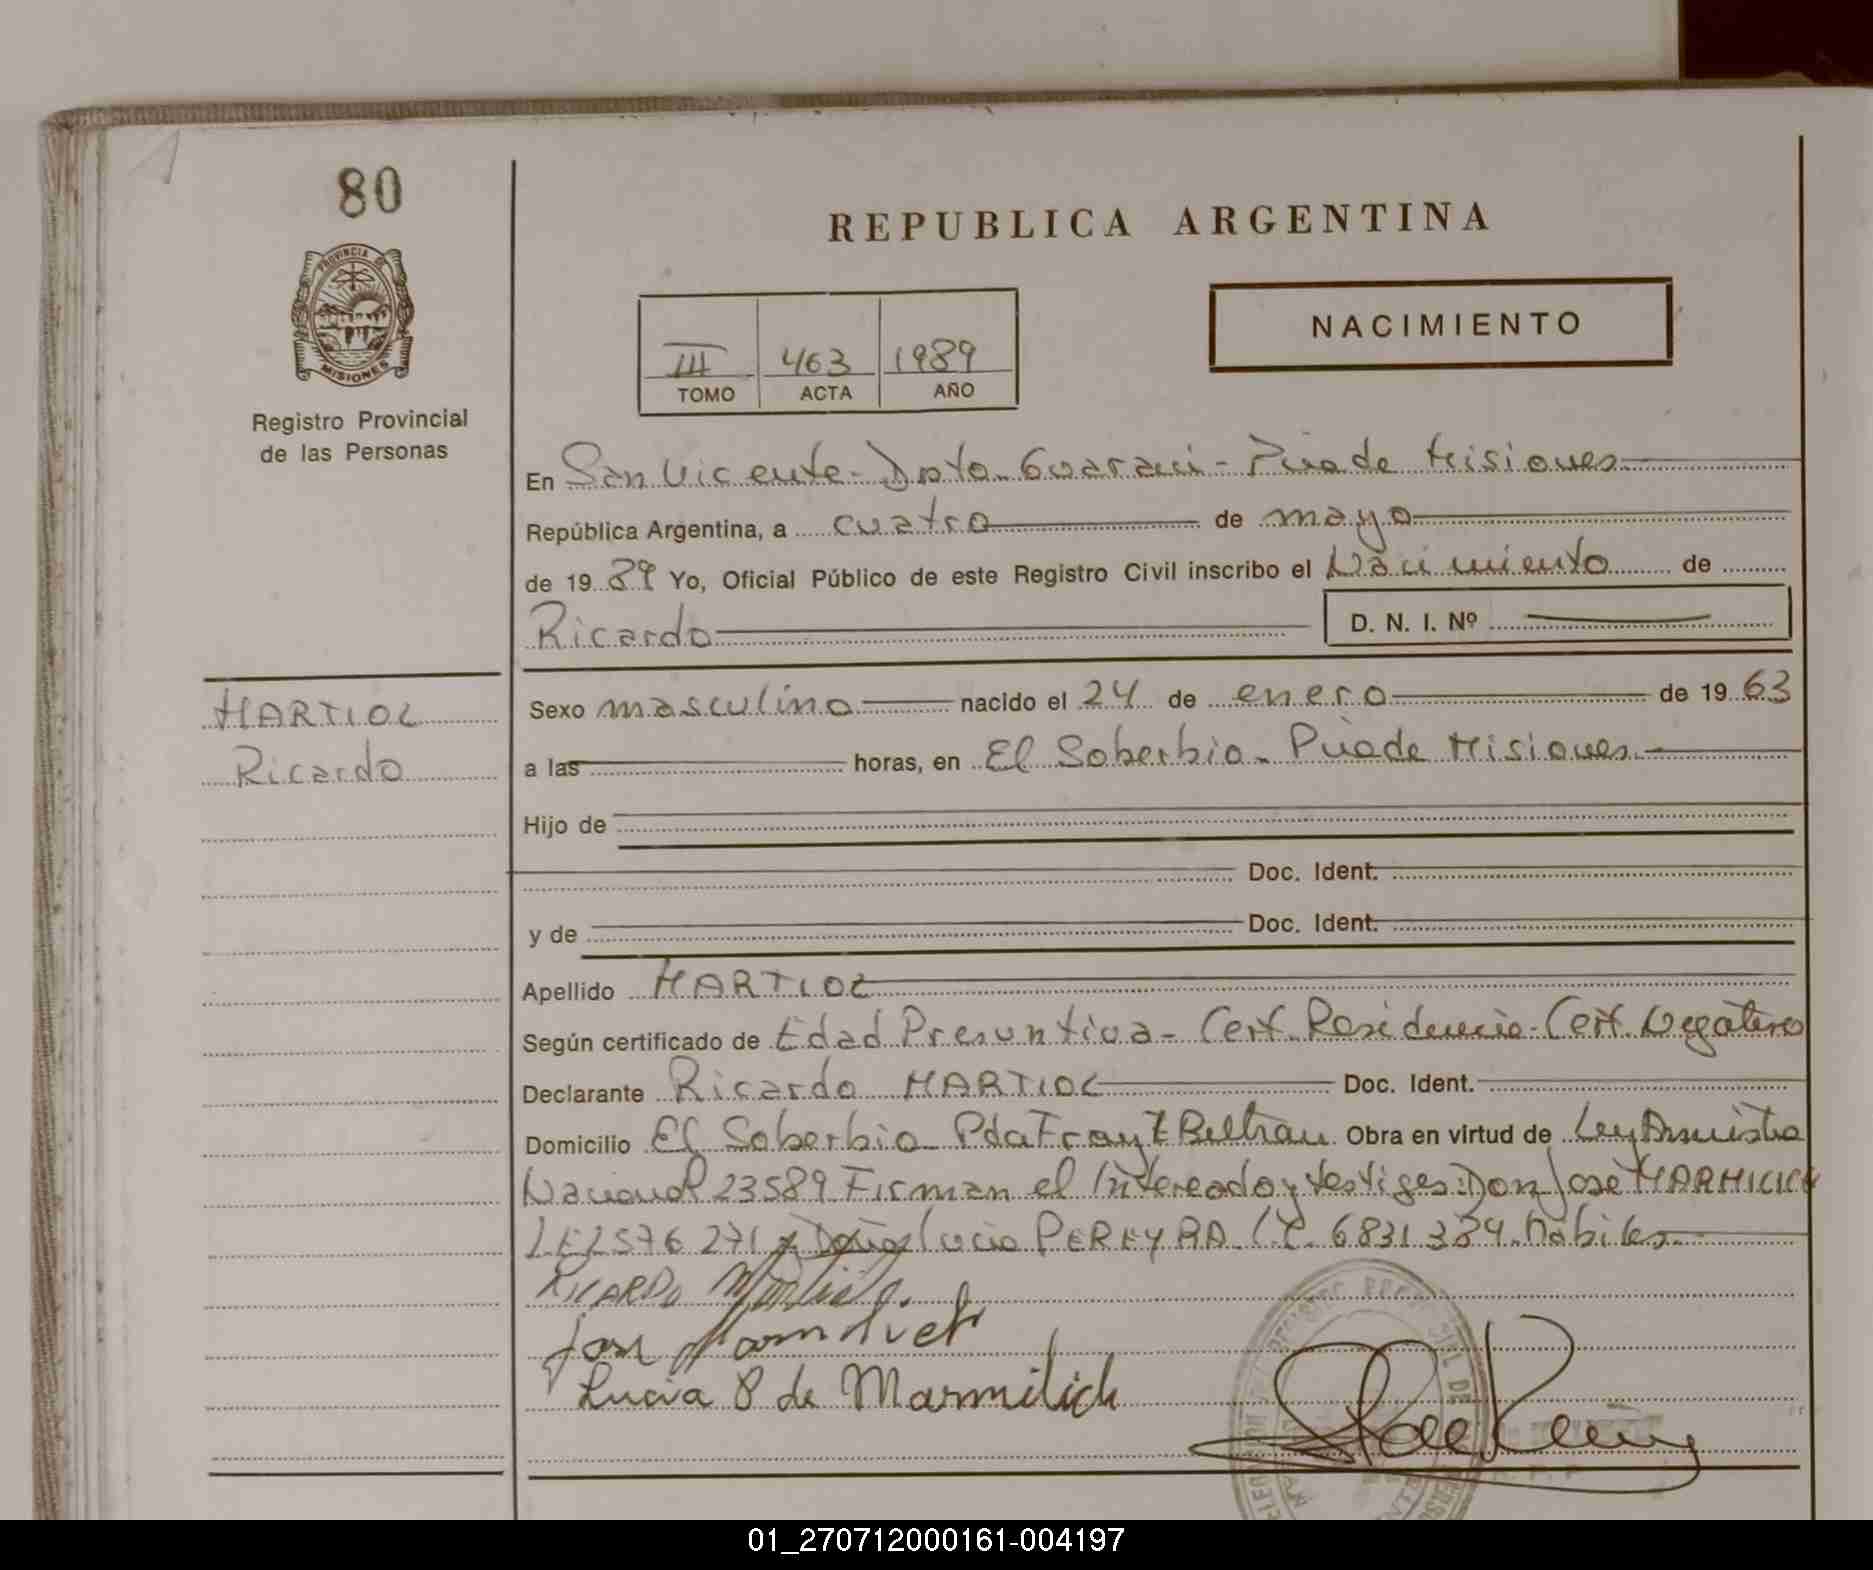 80
PROVINCIA DE
MISIONES
Registro Provincial
de las Personas
REPUBLICA ARGENTINA
NACIMIENTO
III 463 1989
TOMO ACTA AÑO
En San Vicente - Dpto. Guaraní - Pcia de Misiones
República Argentina, a cuatro de mayo
de 1989 Yo, Oficial Público de este Registro Civil inscribo el Nacimiento de
Ricardo D. N. I. Nº
HARTIOL
Ricardo
Sexo masculino nacido el 24 de enero de 1963
a las horas, en El Soberbio - Pcia de Misiones
Hijo de
Doc. Ident.
y de Doc. Ident.
Apellido HARTIOL
Según certificado de Edad Presuntiva - Cert. Residencia - Cert. Negativo
Declarante Ricardo HARTIOL Doc. Ident.
Domicilio El Soberbio Pda Fray L Beltrau Obra en virtud de Ley Amnistia
Nacional 23589 Firman el Intereado y testigos: Don José
271 y Doña Lucia PEREYRA L.C. 6831384 Habiles
RICARDO
Lucia P de Marmilich
01_270712000161-004197